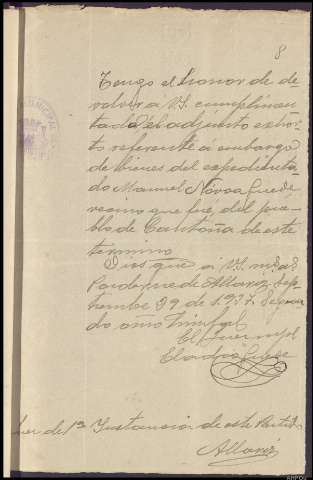 8
Tengo el honor de de
volver a VS. cumplimen
tado el adjunto exhor
to referente a embargo
de bienes del expedienta
do Manuel Nóvoa
vecino que fué del pue
blo de Cantoña de este
término
Dios gue a VS. ms as
Paderne de Allariz Sep
tiembre 29 de 1.937. Segun
do año Triunfal
El Juez mpal
Juez de 1ª Instancia de este Partido
Allariz